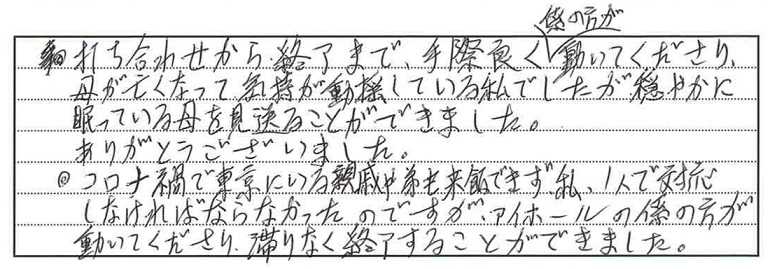 係の方が
打ち合わせから終了まで、手際良く動いてくださり、
母が亡くなって気持が動揺している私でしたが、穏やかに
眠っている母を見送ることができました。
ありがとうございました。
◎コロナ禍で東京にいる親戚や弟も来飯できず私、1人で対応
しなければならなかったのですが、アイホールの係の方が
動いてくださり、滞りなく終了することができました。